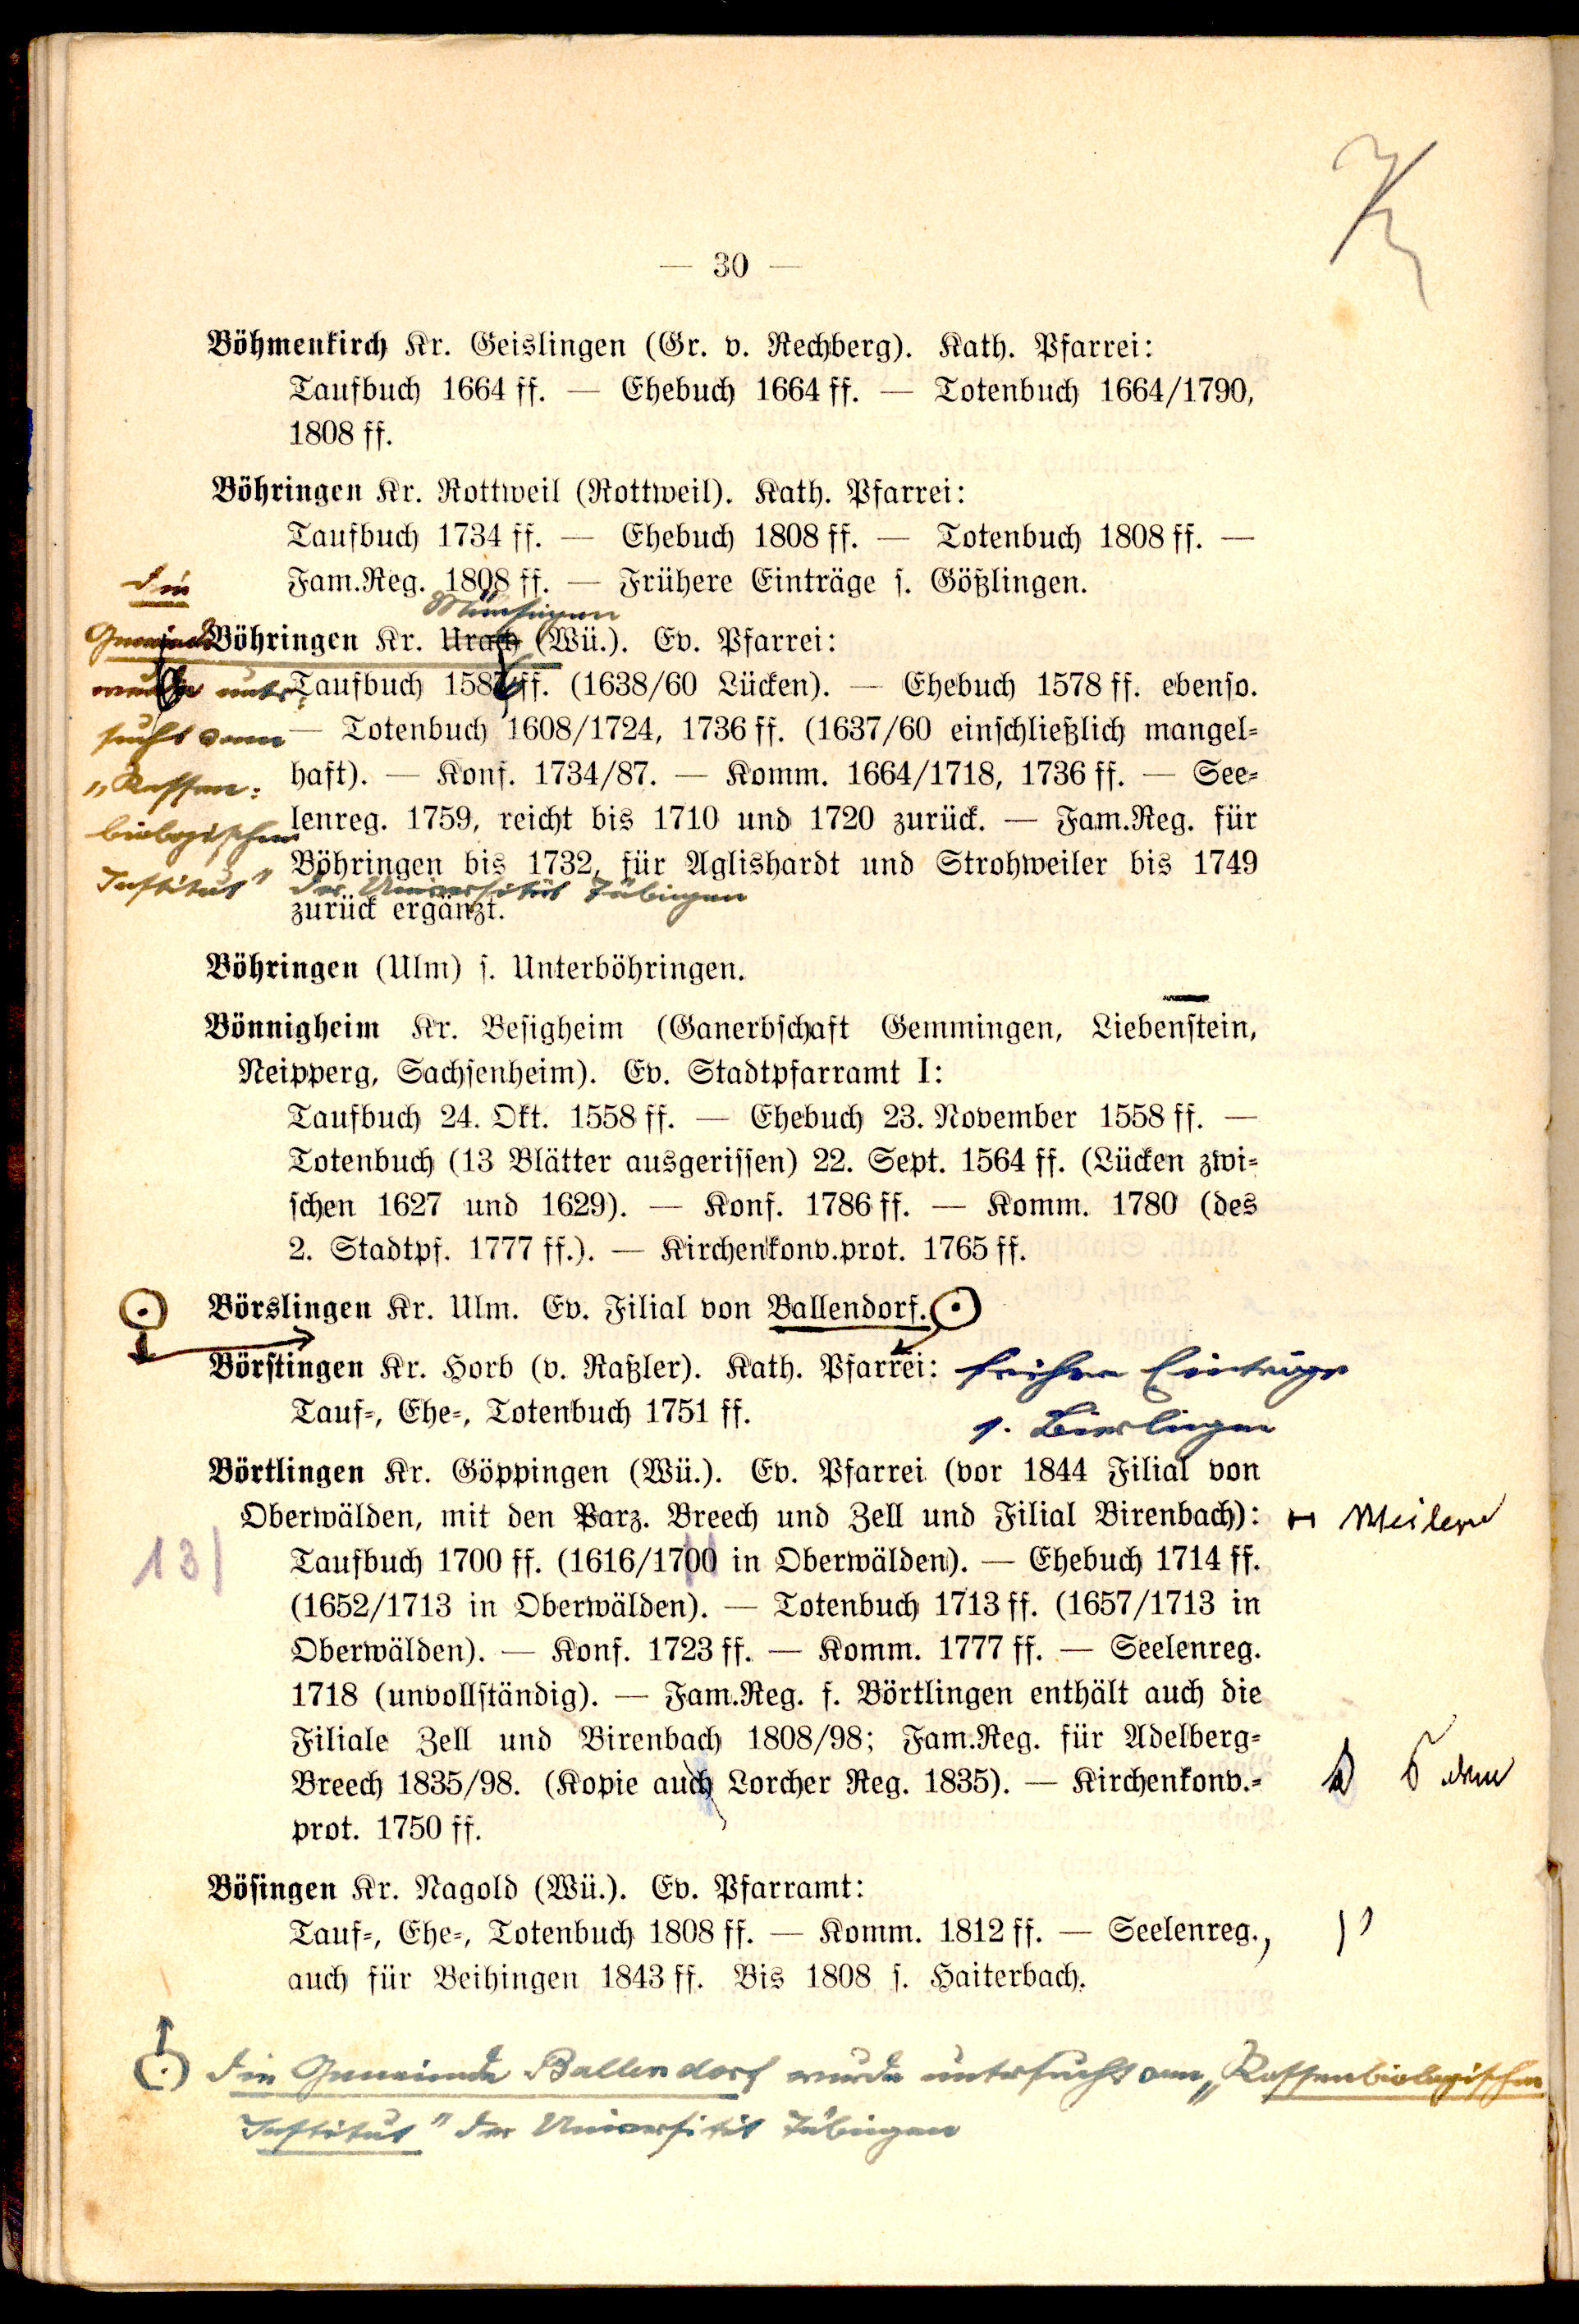 — 30 —
Böhmenkirch Kr. Geislingen (Gr. v. Rechberg). Kath. Pfarrei:
Taufbuch 1664 ff. — Ehebuch 1664 ff. — Totenbuch 1664/1790,
1808 ff.
Böhringen Kr. Rottweil (Rottweil). Kath. Pfarrei:
Taufbuch 1734 ff. — Ehebuch 1808 ff. — Totenbuch 1808 ff. —
Fam.Reg. 1808 ff. — Frühere Einträge s. Gößlingen.
Münsingen
Böhringen Kr. Urach (Wü.). Ev. Pfarrei:
Taufbuch 158 ff. (1638/60 Lücken). — Ehebuch 1578 ff. ebenso.
— Totenbuch 1608/1724, 1736 ff. (1637/60 einschließlich mangel-
haft). — Konf. 1734/87. — Komm. 1664/1718, 1736 ff. — See-
lenreg. 1759, reicht bis 1710 und 1720 zurück. — Fam.Reg. für
Böhringen bis 1732, für Aglishardt und Strohweiler bis 1749
zurück ergänzt.
Die
Gemeinde
wurde unter-
sucht vom
„Rassen-
biologischen
Institut" der Universität Tübingen
Böhringen (Ulm) s. Unterböhringen.
Bönnigheim Kr. Besigheim (Ganerbschaft Gemmingen, Liebenstein,
Neipperg, Sachsenheim). Ev. Stadtpfarramt I:
Taufbuch 24. Okt. 1558 ff. — Ehebuch 23. November 1558 ff. —
Totenbuch (13 Blätter ausgerissen) 22. Sept. 1564 ff. (Lücken zwi-
schen 1627 und 1629). — Konf. 1786 ff. — Komm. 1780 (des
2. Stadtpf. 1777 ff.). — Kirchenkonv.prot. 1765 ff.
Börslingen Kr. Ulm. Ev. Filial von Ballendorf.
Börstingen Kr. Horb (v. Raßler). Kath. Pfarrei: frühere Einträge
Tauf-, Ehe-, Totenbuch 1751 ff. s. Bierlingen
Börtlingen Kr. Göppingen (Wü.). Ev. Pfarrei (vor 1844 Filial von
Oberwälden, mit den Parz. Breech und Zell und Filial Birenbach):
13) Taufbuch 1700 ff. (1616/1700 in Oberwälden). — Ehebuch 1714 ff.
(1652/1713 in Oberwälden). — Totenbuch 1713 ff. (1657/1713 in
Oberwälden). — Konf. 1723 ff. — Komm. 1777 ff. — Seelenreg.
1718 (unvollständig). — Fam.Reg. f. Börtlingen enthält auch die
Filiale Zell und Birenbach 1808/98; Fam.Reg. für Adelberg-
Breech 1835/98. (Kopie auch Lorcher Reg. 1835). — Kirchenkonv.-
prot. 1750 ff.
Bösingen Kr. Nagold (Wü.). Ev. Pfarramt:
Tauf-, Ehe-, Totenbuch 1808 ff. — Komm. 1812 ff. — Seelenreg.,
auch für Beihingen 1843 ff. Bis 1808 s. Haiterbach.
Die Gemeinde Ballendorf wurde untersucht vom „Rassenbiologischen
Institut" der Universität Tübingen